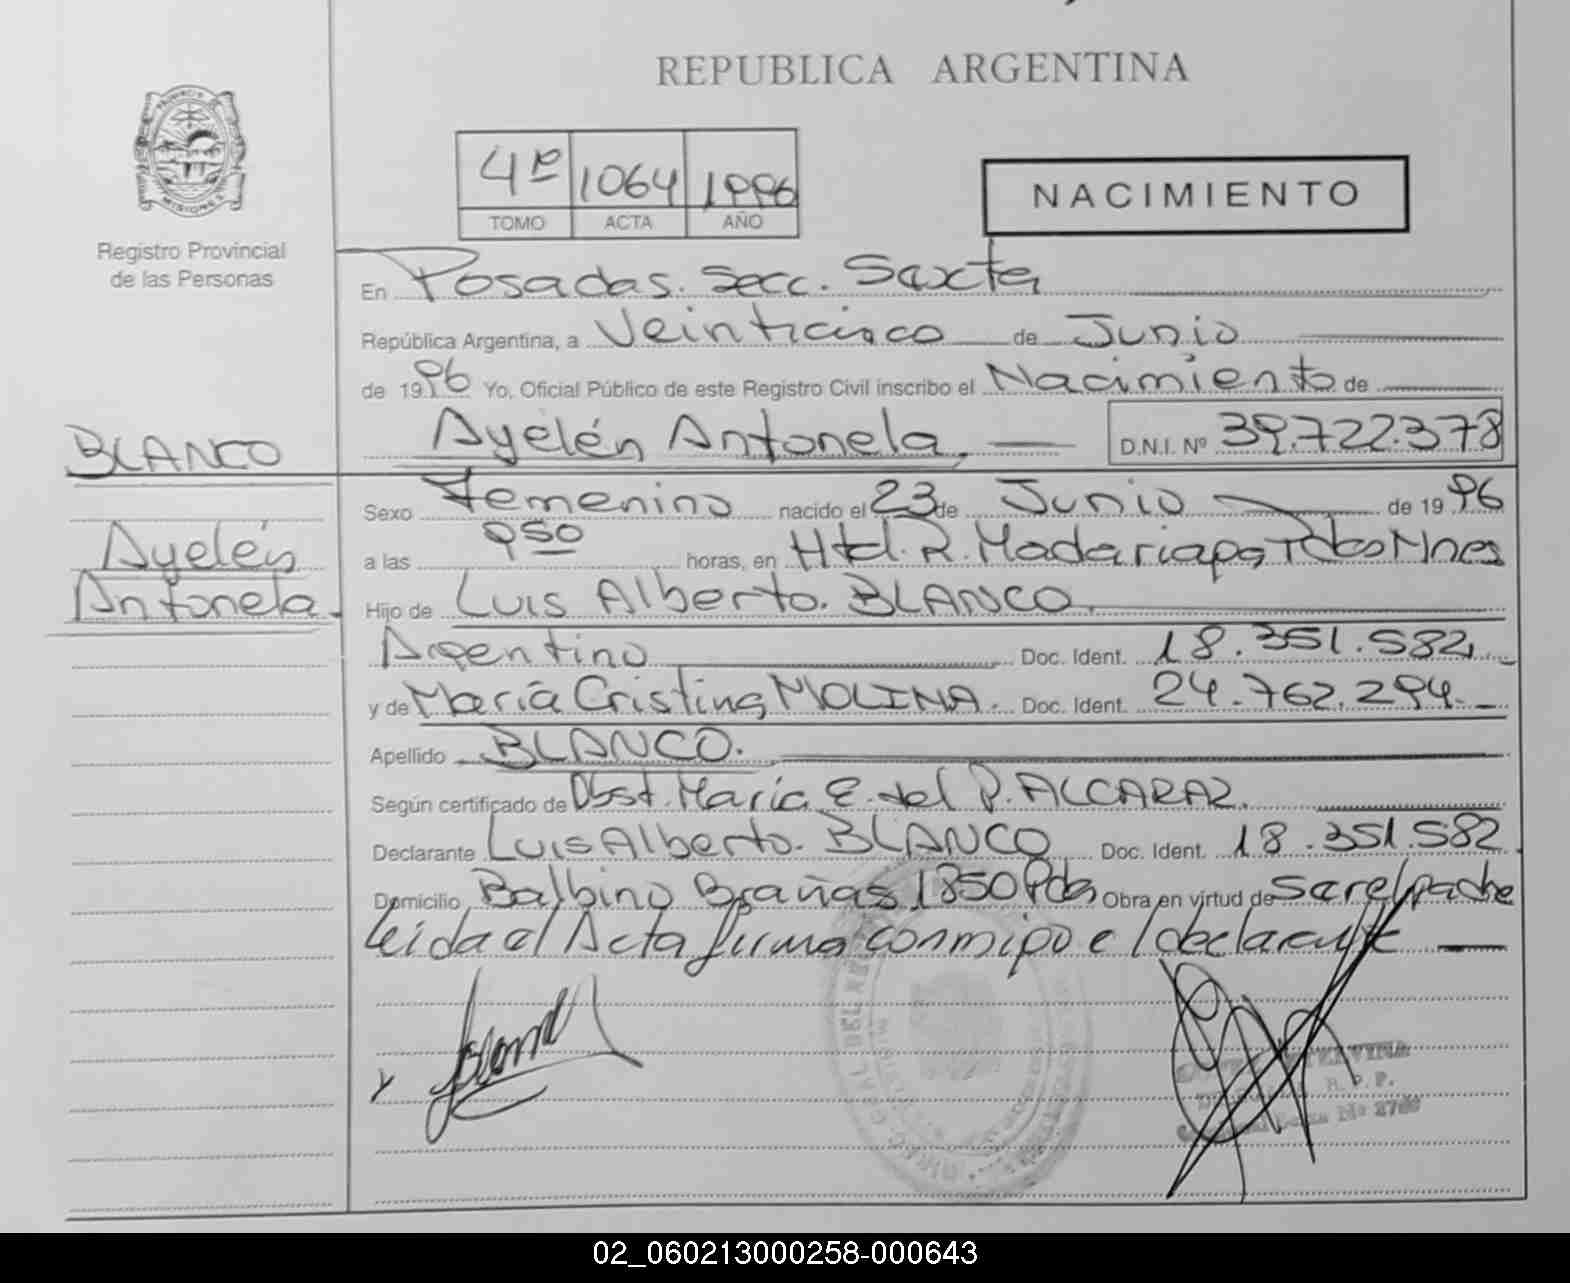 REPUBLICA ARGENTINA
PROVINCIA DE
MISIONES
Registro Provincial
de las Personas
4º 1064 1996
TOMO ACTA AÑO
NACIMIENTO
En Posadas. Secc. Sexta
República Argentina, a Veinticinco de Junio
de 1996 Yo, Oficial Público de este Registro Civil inscribo el Nacimiento de
Ayelén Antonela. D.N.I. Nº 39.722.378
BLANCO
Ayelén
Antonela.
Sexo Femenino nacido el 23 de Junio de 1996
a las 950 horas, en Htal. R. Madariaga, Pdas Mnes
Hijo de Luis Alberto. BLANCO.
Argentino Doc. Ident. 18.351.582
y de María Cristina MOLINA. Doc. Ident. 24.762.294.
Apellido BLANCO.
Según certificado de Obst. María E. del P. ALCARAZ.
Declarante Luis Alberto. BLANCO Doc. Ident. 18.351.582
Domicilio Balbino Brañas 1850 Pdas Obra en virtud de ser el padre
leida el Acta firma conmigo el declarante
R. P. P.
02_060213000258-000643